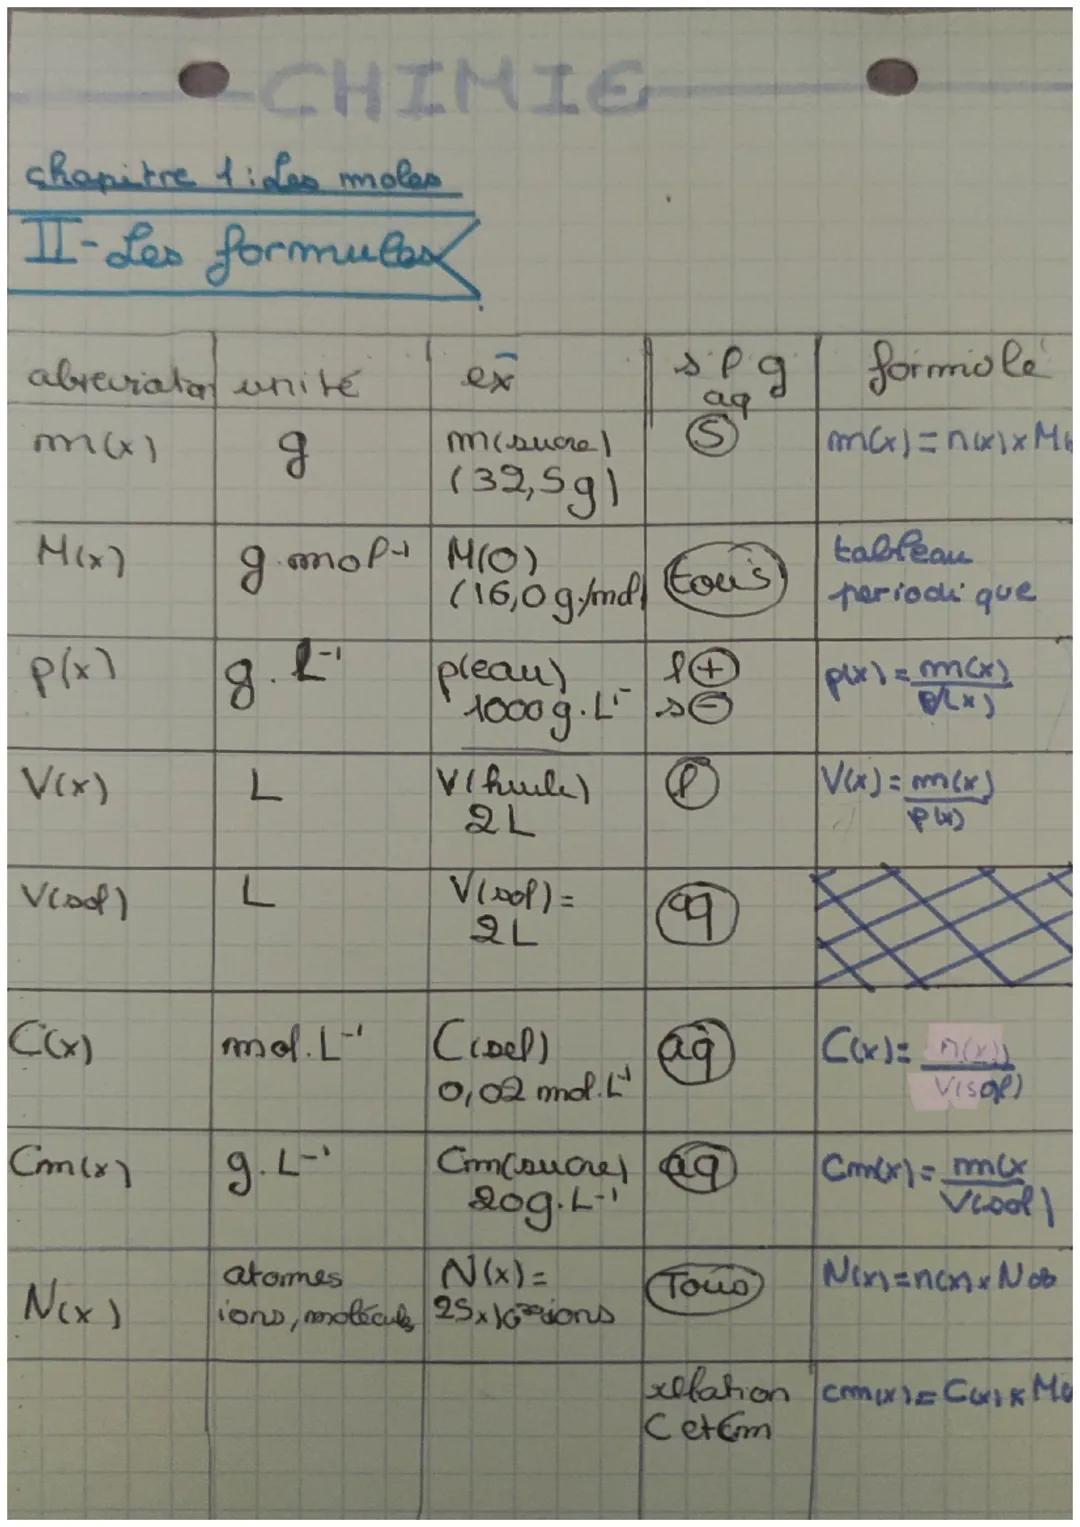 CHIMIE
chapitre 1 : Les moles
II - Les formules
abreviation unité ex s l g aq formule
m(x) g m(sucre) (32,5g) S m(x) = n(x) x M(
M(x) g.mol-1 M(O) (16,0 g/mol) tous tableau periodique
ρ(x) g.L-1 ρ(eau) 1000g.L- l + s - ρ(x) = m(x) / V(x)
V(x) L V(huile) 2L l V(x) = m(x) / ρ(x)
V(sol) L V(sol) = 2L aq
C(x) mol.L-1 C(sel) 0,02 mol.L-1 aq C(x) = n(x) / V(sol)
Cm(x) g.L-1 Cm(sucre) 20g.L-1 aq Cm(x) = m(x / V(sol)
N(x) atomes ions, molécules N(x) = ions Tous N(x) = n(x) x
relation C et Cm cm(x) = C(x) x M(